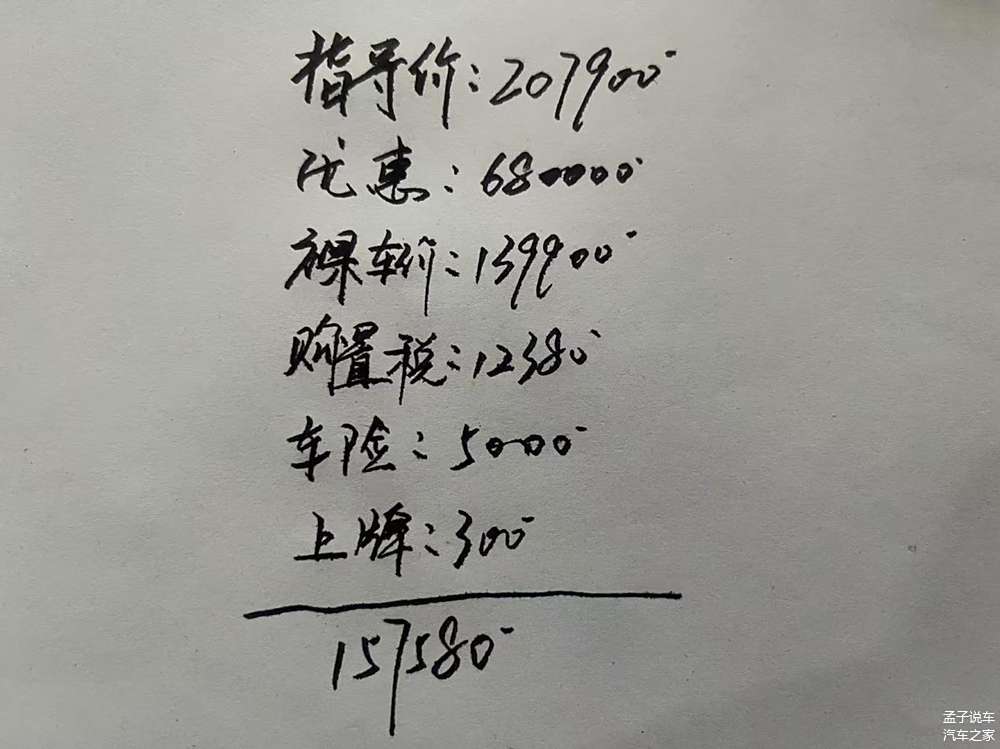 指导价:207900
优惠:680000
裸车价:139900
购置税:12380
车险:5000
上牌:300
157580
孟子说车
汽车之家